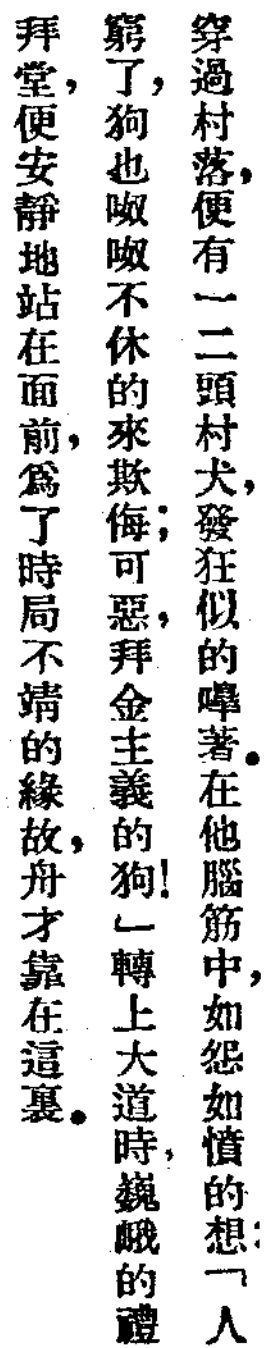 穿過村落，便有一二頭村犬，發狂似的嘷著。在他腦筋中，如怨如憤的想：「人
窮了，狗也呶呶不休的來欺侮；可惡，拜金主義的狗！」轉上大道時，巍峨的禮
拜堂，便安靜地站在面前，爲了時局不靖的緣故，舟才靠在這裏。